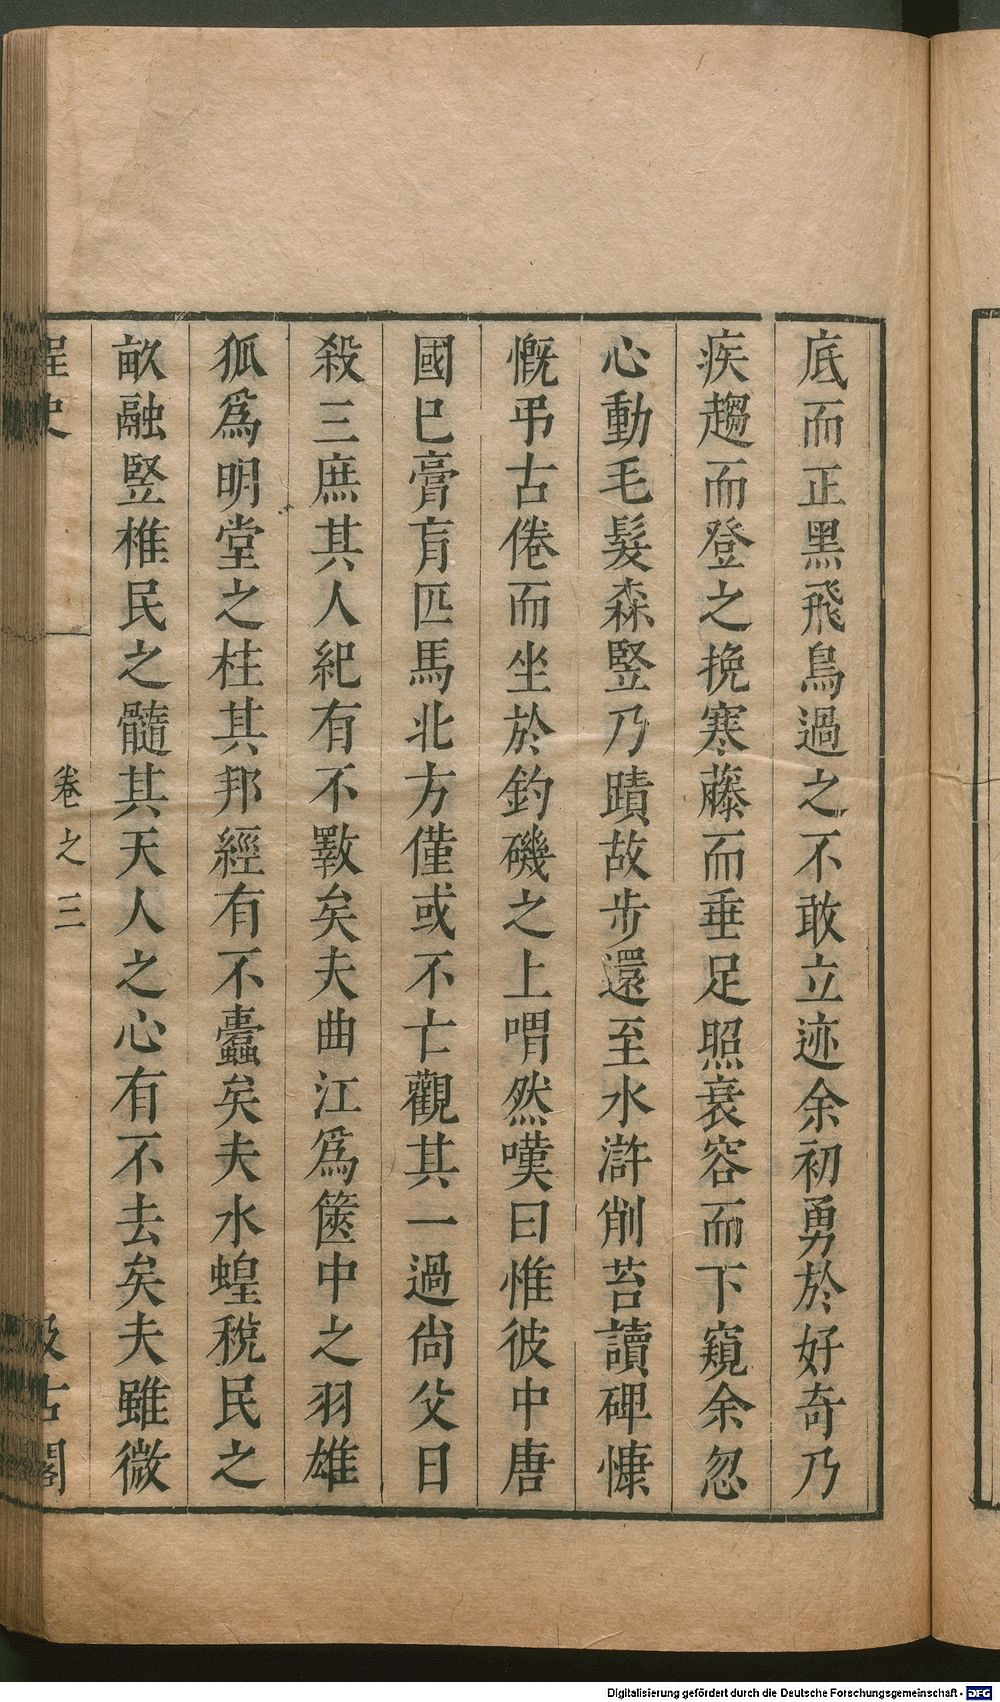 底而正黑飛鳥過之不敢立迹余初勇於好奇乃
疾趨而登之挽寒藤而垂足照衰容而下窺余忽
心動毛髮森竪乃蹟故步還至水滸削苔讀碑慷
慨弔古倦而坐於釣磯之上喟然嘆曰惟彼中唐
國巳膏肓匹馬北方僅或不亡觀其一過尙父日
殺三庶其人紀有不斁矣夫曲江爲篋中之羽雄
狐爲明堂之柱其邦經有不蠹矣夫水蝗稅民之
畝融竪椎民之髓其天人之心有不去矣夫雖微
桯史
卷之三
汲古閣
Digitalisierung gefördert durch die Deutsche Forschungsgemeinschaft - DFG